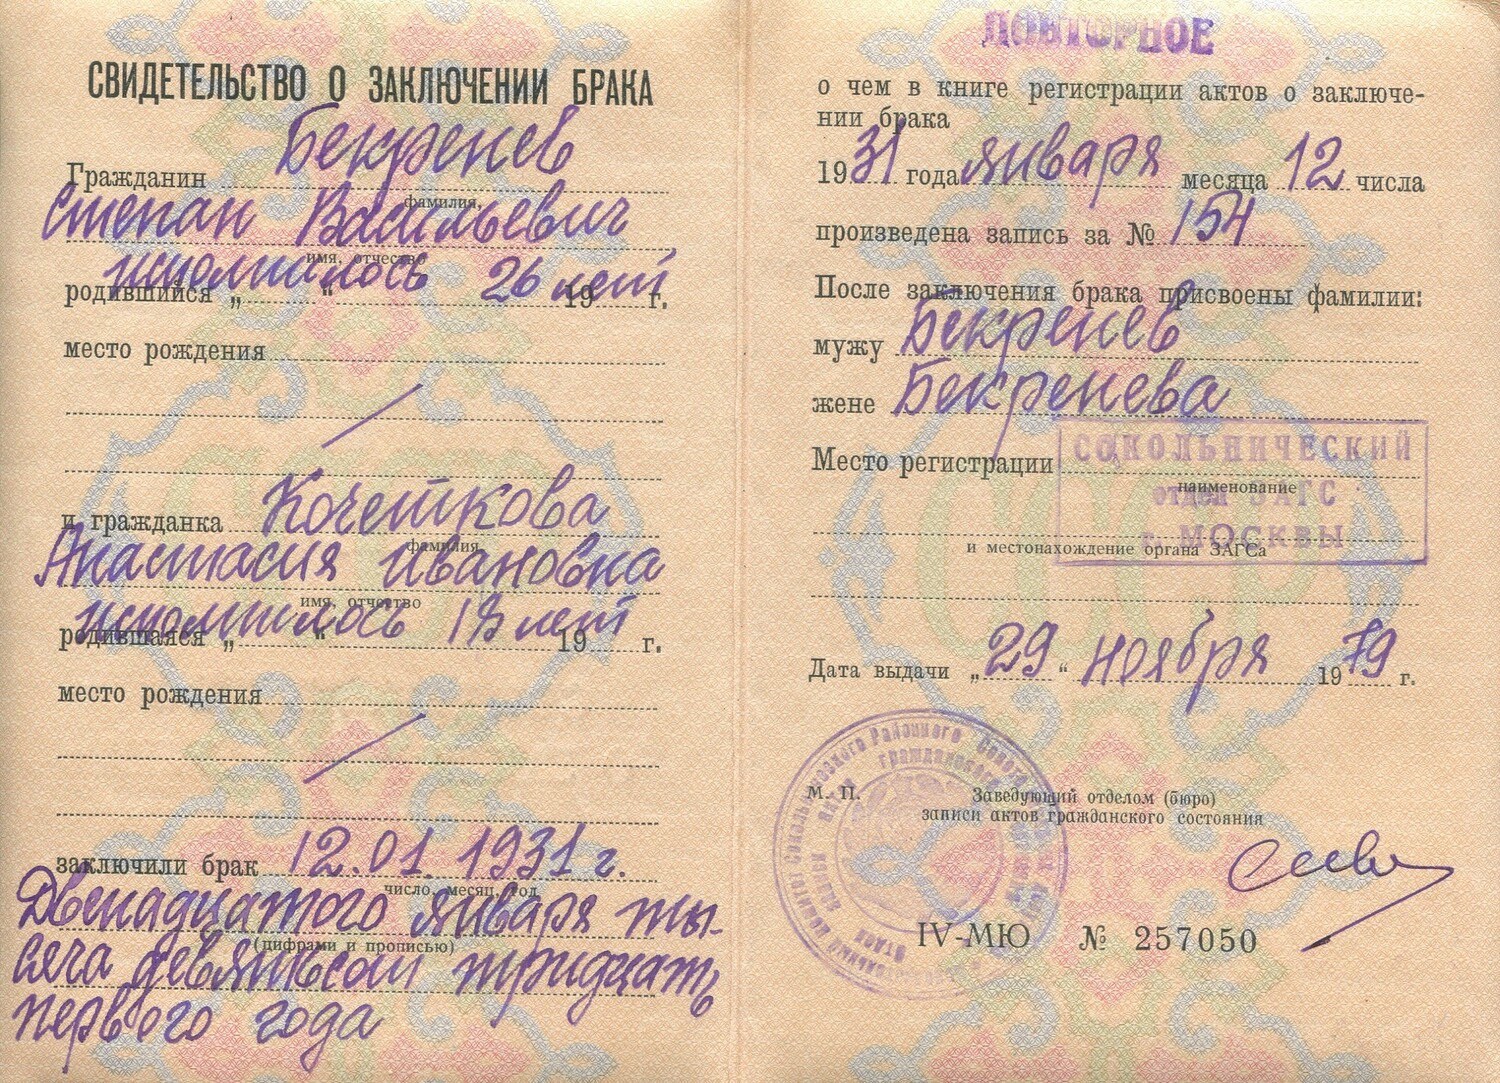 СВИДЕТЕЛЬСТВО О ЗАКЛЮЧЕНИИ БРАКА
Гражданин Бекренев
фамилия,
Степан Васильевич
имя, отчество
исполнилось 26 лет
родившийся „ “ 19 г.
место рождения
и гражданка Кочеткова
фамилия,
Анастасия Ивановна
имя, отчество
исполнилось 18 лет
родившаяся „ “ 19 г.
место рождения
заключили брак 12.01.1931 г.
число, месяц, год
Двенадцатого января ты-
(цифрами и прописью)
сяча девятьсот тридцать
первого года
ПОВТОРНОЕ
о чем в книге регистрации актов о заключе-
нии брака
1931 года января месяца 12 числа
произведена запись за № 154
После заключения брака присвоены фамилии:
мужу Бекренев
жене Бекренева
СОКОЛЬНИЧЕСКИЙ
Место регистрации
наименование
отдел ЗАГС
г. МОСКВЫ
и местонахождение органа ЗАГСа
Дата выдачи „29“ ноября 1979 г.
М. П.
Заведующий отделом (бюро)
записи актов гражданского состояния
IV-МЮ № 257050